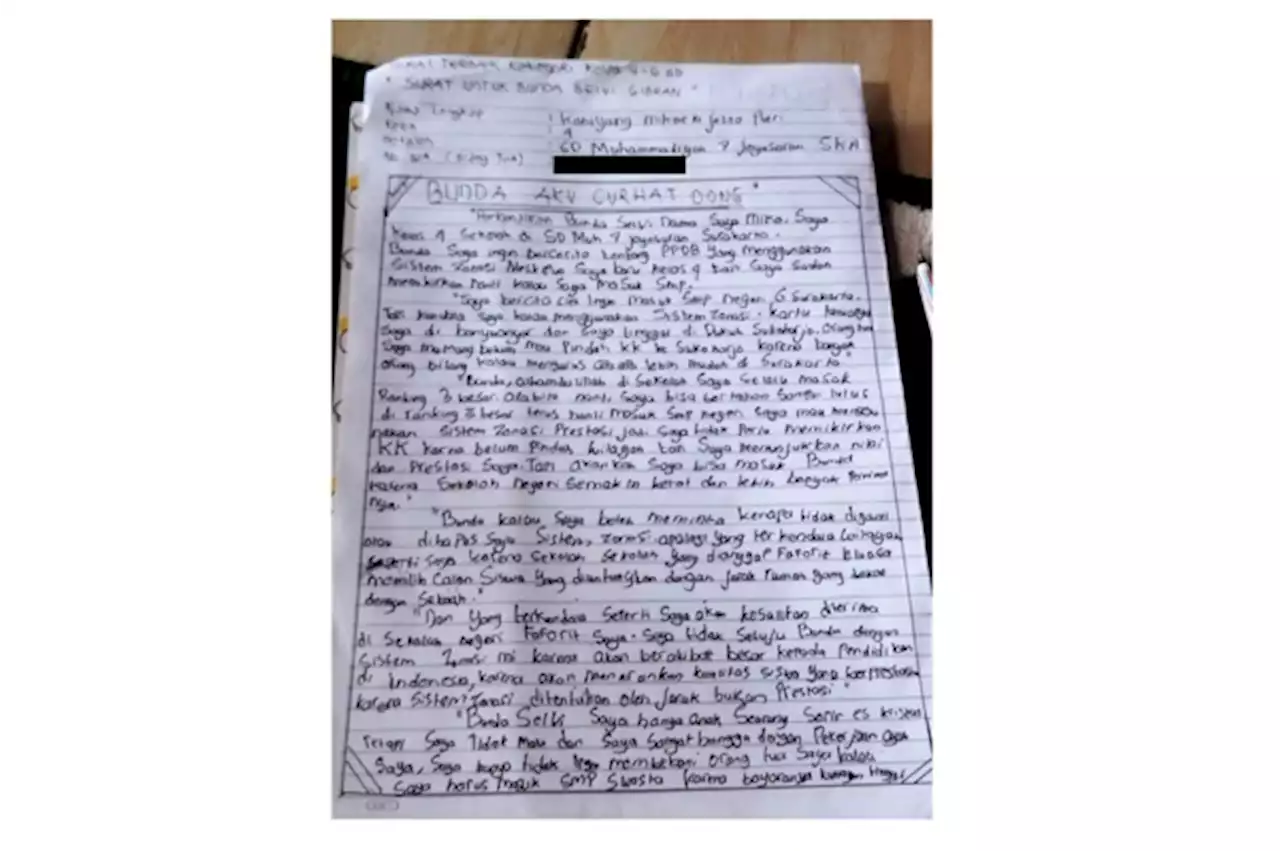 Surat Terbaik Kategori Kelas 4-6 SD
"SURAT UNTUK BUNDA SELVI GIBRAN"
Nama Lengkap :
Kelas : 4
Sekolah : SD Muhammadiyah 7 Joyosuran SKA
No. WA (Orang Tua)
BUNDA AKU CURHAT DONG"
"Perkenalkan Bunda Selvi Nama Saya Mika. Saya
Kelas 4 Sekolah di SD Muh 7 joyosuran Surakarta.
Bunda Saya ingin bercerita tentang PPDB Yang menggunakan
Sistem Zonasi Meskipun Saya baru kelas 4 tapi Saya Sudah
memikirkan nanti kalau Saya masuk SMP.
"Saya bercita cita Ingin masuk Smp Negeri 6 Surakarta.
Tapi Saya harus menggunakan Sistem Zonasi. Kartu
Saya di banyuanyar dan Saya tinggal di Sukoharjo. Orang tua
Saya memang belum mau Pindah KK ke Sukoharjo karena banyak
orang bilang kalau mengurus lebih mudah di Surakarta"
"Bunda, alhamdulillah di Sekolah Saya Selalu masuk
Ranking 3 besar. nanti Saya bisa bertahan Sampai lulus
di ranking 3 besar terus nanti masuk Smp negeri Saya mau
Sistem Zonasi Prestasi jadi Saya tidak Perlu memikirkan
KK karna belum Pindah wilayah tapi Saya menunjukkan nilai
dan Prestasi Saya. Tapi akankah Saya bisa masuk Bunda
karena Sekolah negeri Semakin berat dan lebih banyak
nya."
"Bunda kalau Saya boleh meminta kenapa tidak diganti
atau dihapus Saja Sistem Zonasi apalagi Yang terkendala wilayah
Seperti Saya karena Sekolah Sekolah Yang dianggap Faforit
memilih Calon Siswa Yang diuntungkan dengan jarak rumah Yang dekat
dengan Sekolah."
"Dan Yang terkendala Seperti Saya akan kesulitan diterima
di Sekolah negeri Faforit Saya. Saya tidak Setuju Bunda dengan
Sistem Zonasi ini karena akan berakibat besar kepada Pendidikan
di Indonesia, karena akan menurunkan kualitas Siswa Yang berprestasi
karena Sistem Zonasi ditentukan oleh Jarak bukan Prestasi"
"Bunda Selvi Saya hanya anak Seorang Sopir es kristal
tetapi Saya Tidak Malu dan Saya Sangat bangga dengan Pekerjaan ayah
Saya, Saya hanya tidak ingin membebani orang tua Saya kalau
Saya harus masuk SMP Swasta karna bayarannya tinggi